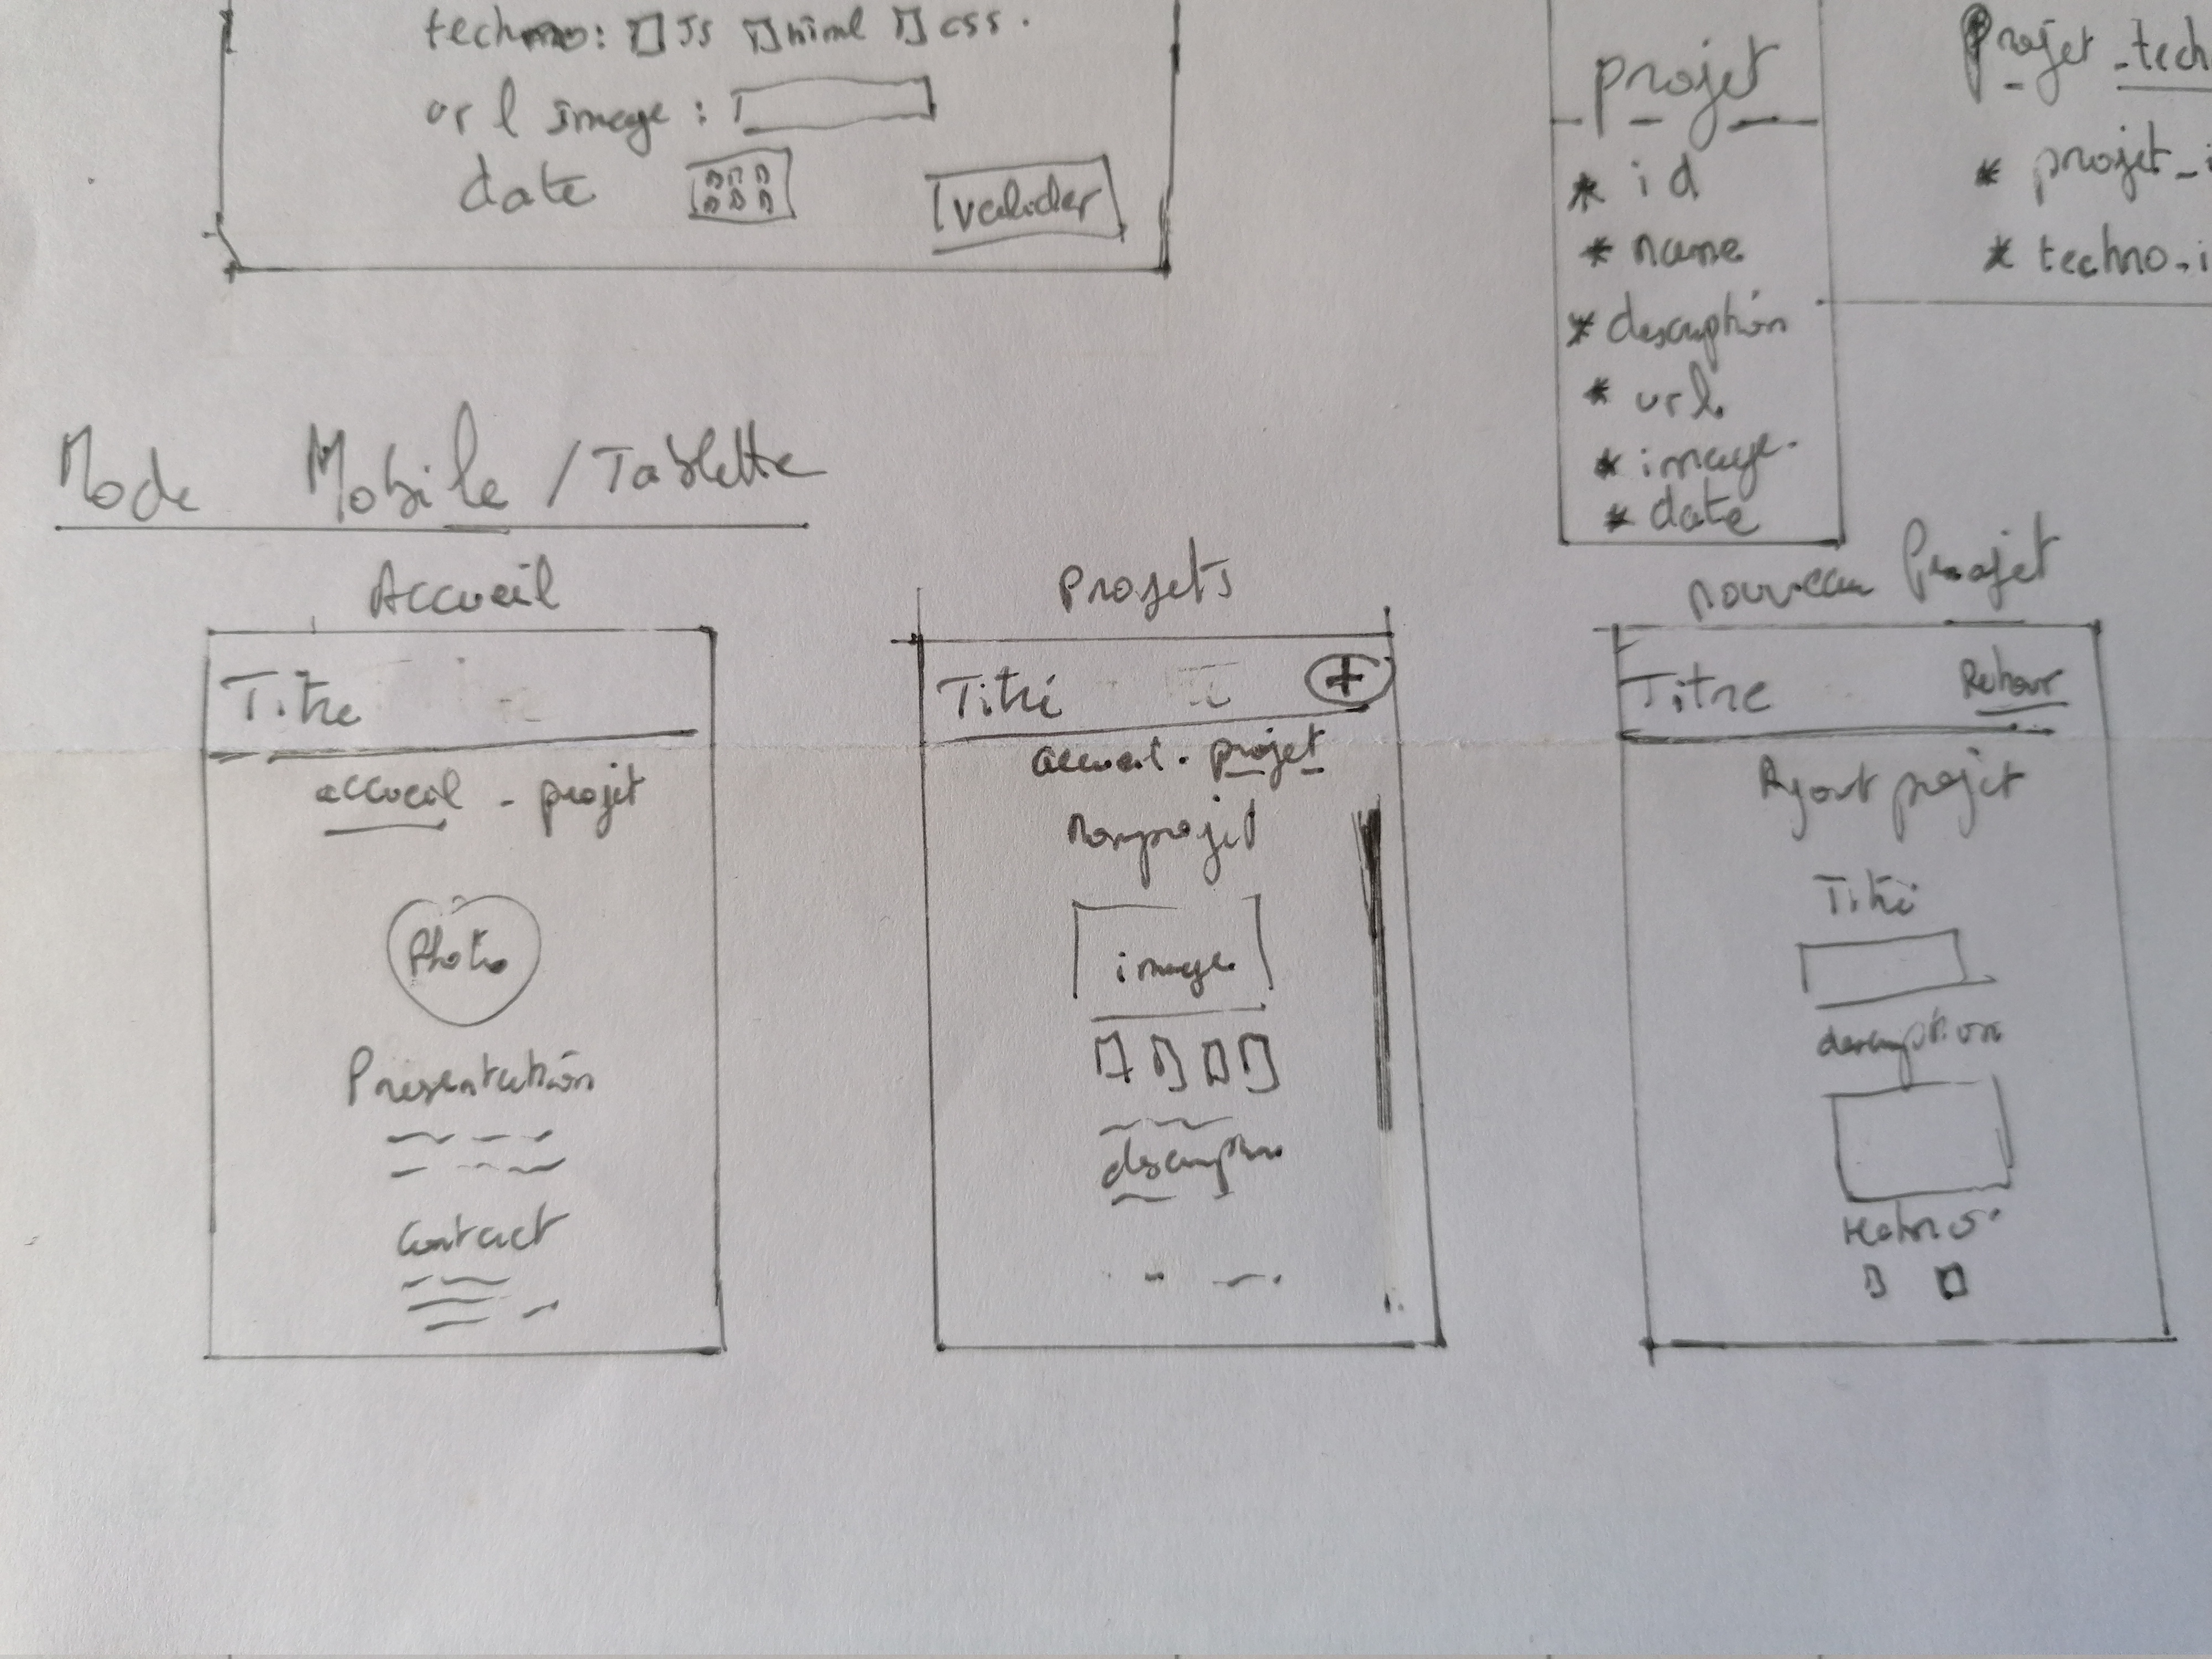 techno: JS html css.
url image :
date
valider
projet
* id
* name
* description
* url
* image
* date
Projet_tech
* projet_i
* techno_i
Mode Mobile / Tablette
Accueil
Titre
accueil - projet
Photo
Presentation
Contact
Projets
Titre +
accueil - projet
Nom projet
image
description
nouveau Projet
Titre Retour
Ajout projet
Titre
description
techno